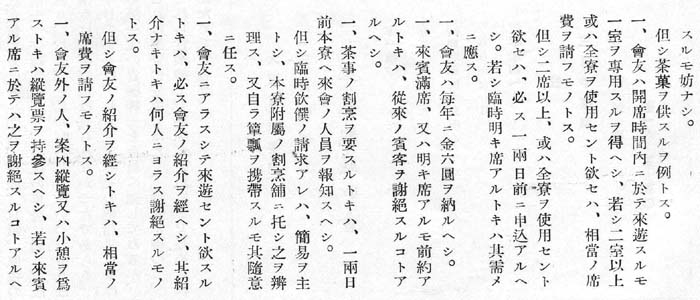 スルモ妨ナシ。
但シ茶菓ヲ供スルヲ例トス。
一、會友ハ開席時間內ニ於テ來遊スルモ
一室ヲ專用スルヲ得ヘシ、若シ二室以上
或ハ全寮ヲ使用セント欲セハ、相當ノ席
費ヲ請フモノトス。
但シ二席以上、或ハ全寮ヲ使用セント
欲セハ、必ス一兩日前ニ申込アルヘ
シ。若シ臨時明キ席アルトキハ其需メ
ニ應ス。
一、會友ハ每年ニ金六圓ヲ納ルヘシ。
一、來賓滿席、又ハ明キ席アルモ前約ア
ルトキハ、從來ノ賓客ヲ謝絕スルコトア
ルヘシ。
一、茶事ノ割烹ヲ要スルトキハ、一兩日
前本寮ヘ來會ノ人員ヲ報知スヘシ。
但シ臨時飮饌ノ請求アレハ、簡易ヲ主
トシ、本寮附屬ノ割烹舖ニ托シ之ヲ辨
理ス、又自ラ簞瓢ヲ携帶スルモ其隨意
ニ任ス。
一、會友ニアラスシテ來遊セント欲スル
トキハ、必ス會友ノ紹介ヲ經ヘシ、其紹
介ナキトキハ何人ニヨラス謝絕スルモノ
トス。
但シ會友ノ紹介ヲ經シトキハ、相當ノ
席費ヲ請フモノトス。
一、會友外ノ人、案內縱覽又ハ小憩ヲ爲
ストキハ縱覽票ヲ持參スヘシ、若シ來賓
アル席ニ於テハ之ヲ謝絕スルコトアルヘ